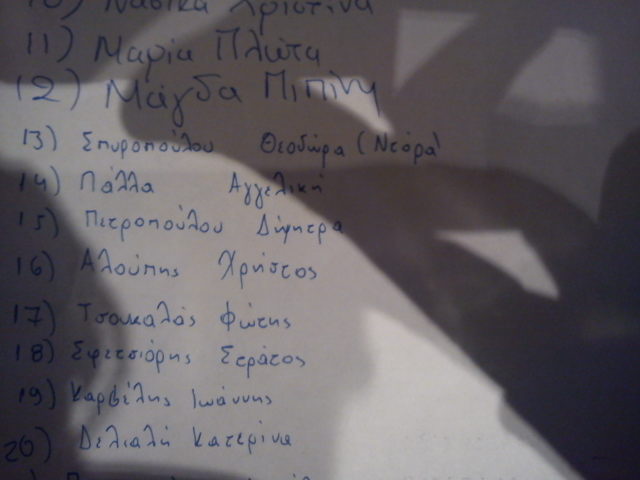 10) Χριστίνα
11) Μαρία Πλώτα
12) Μάγδα Πιπίνη
13) Σπυροπούλου Θεοδώρα (Νεόρα)
14) Πάλλα Αγγελική
15) Πετροπούλου Δήμητρα
16) Αλούπης Χρήστος
17) Τσουκαλάς Φώτης
18) Σφετσιόρης Στράτος
19) Καρβέλης Ιωάννης
20) Δελιαλή Κατερίνα